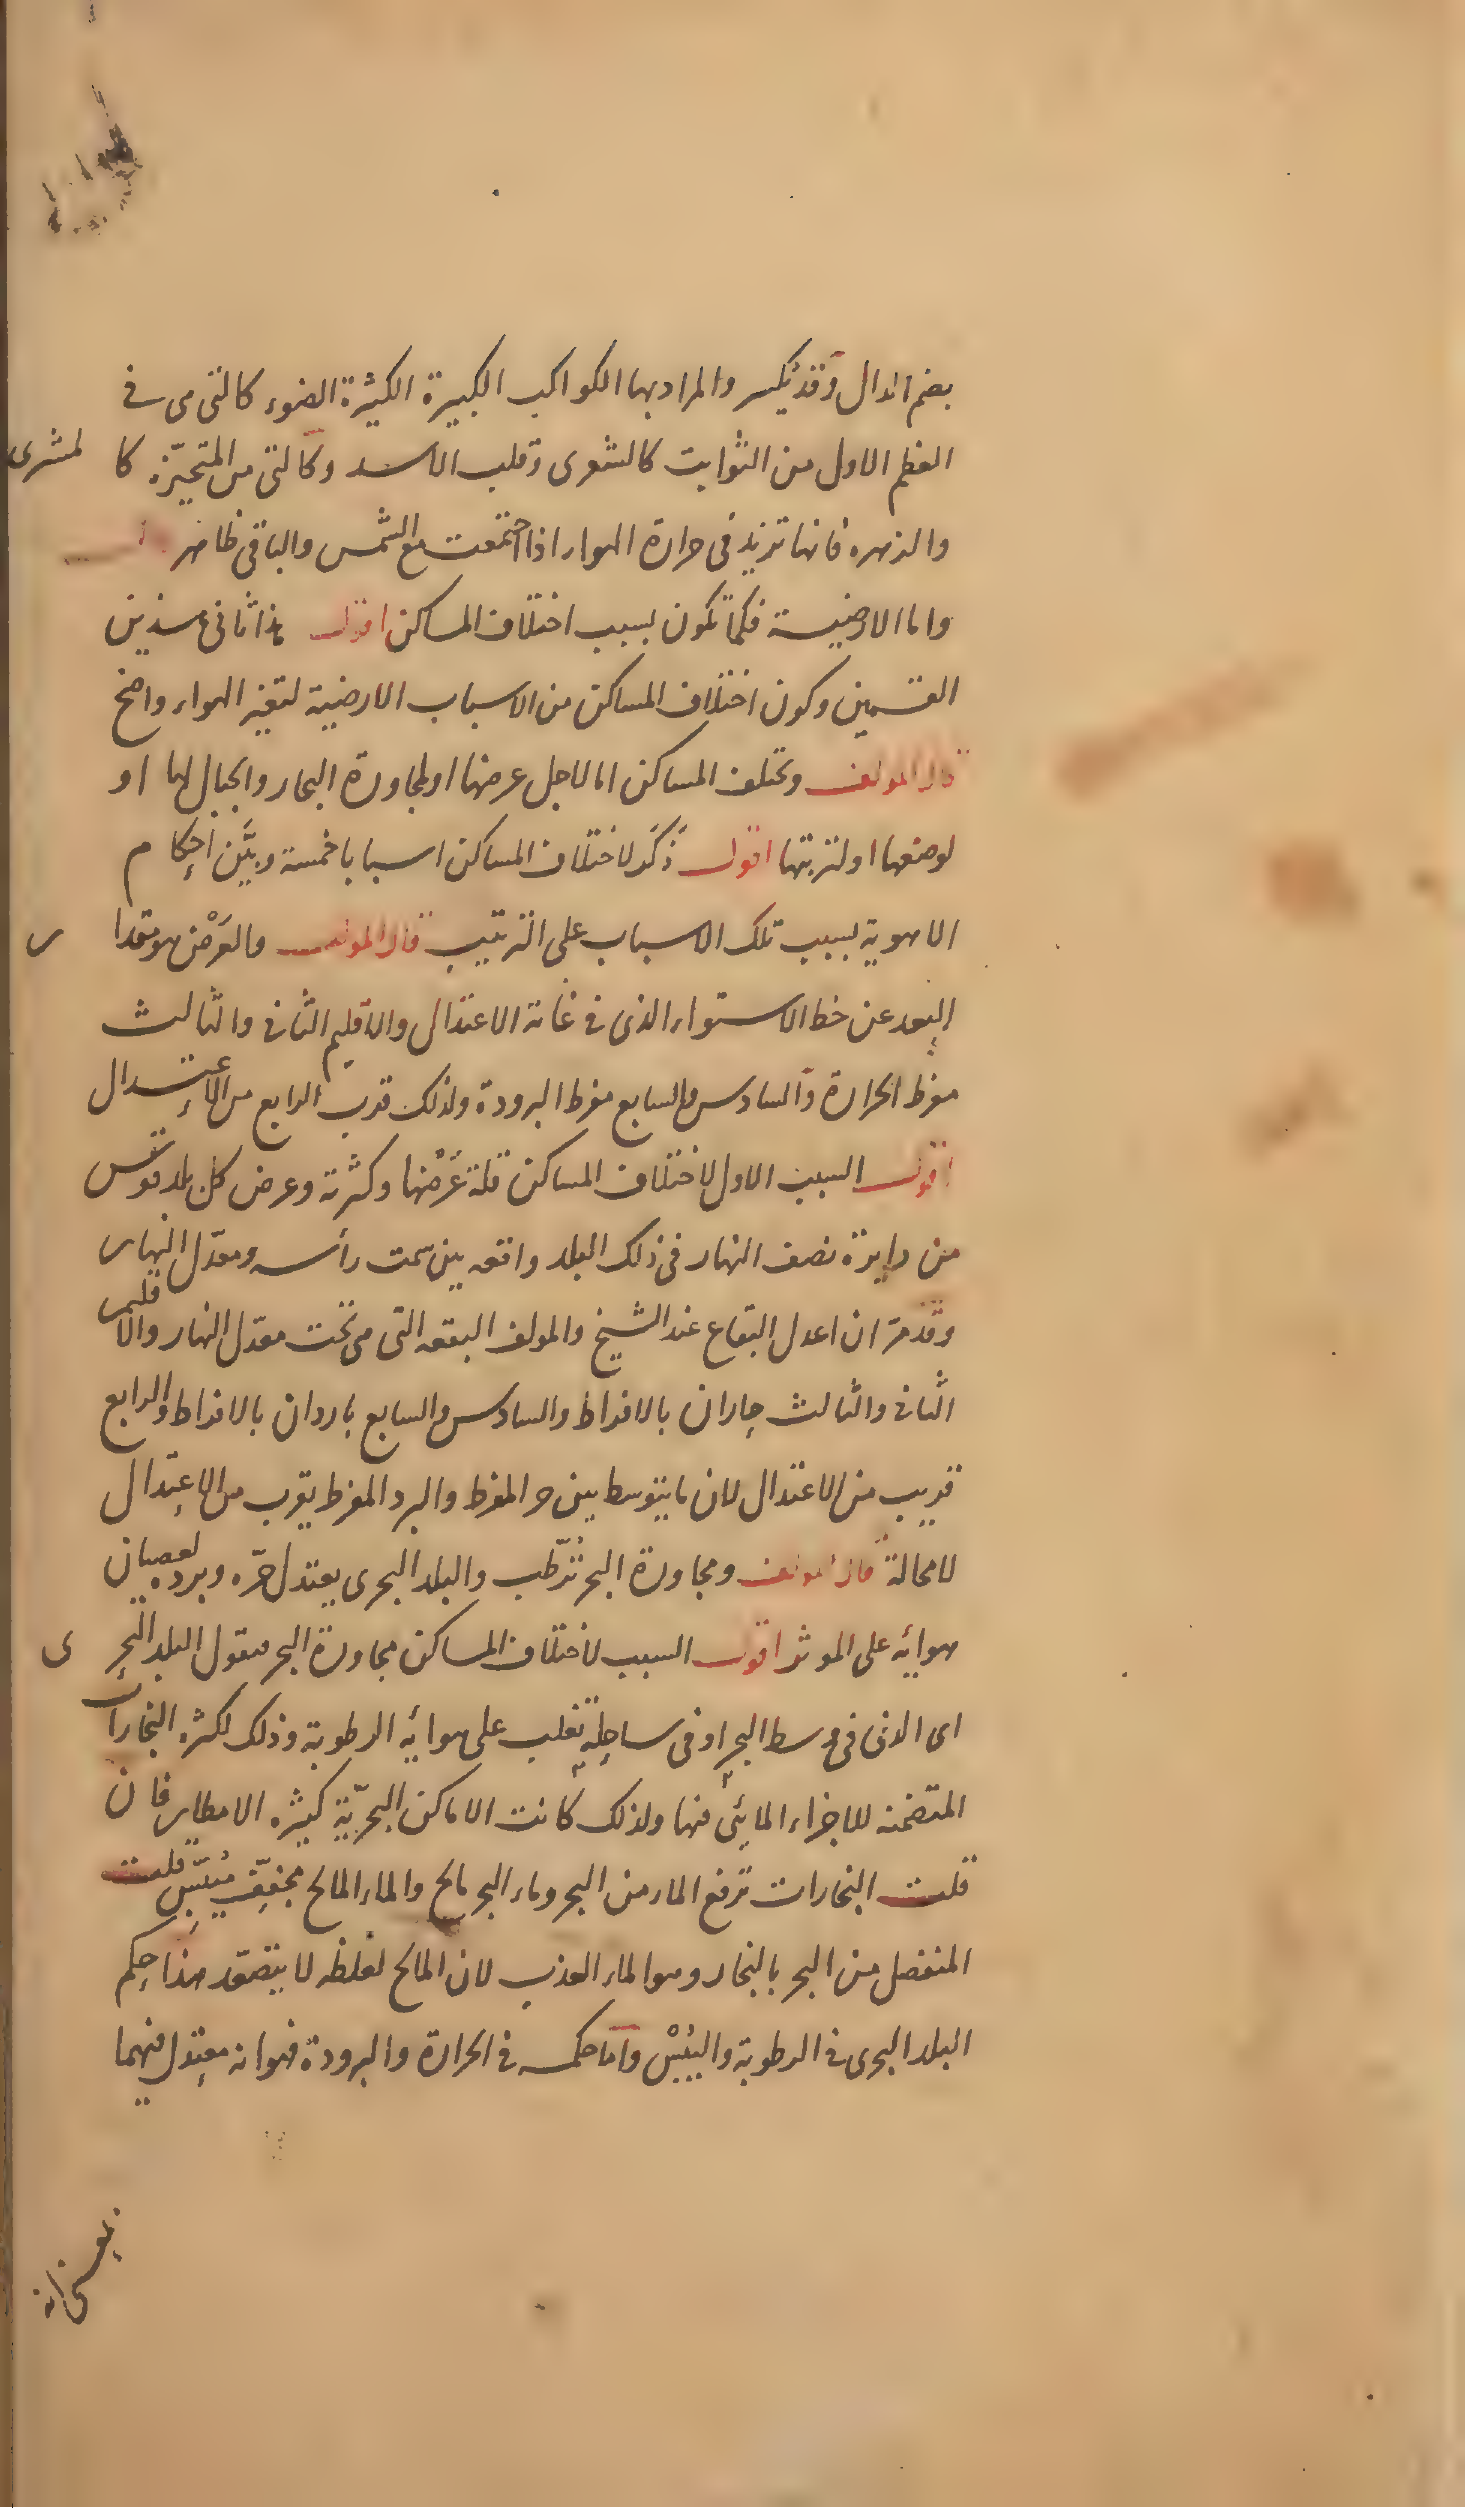 بضم الدال وقد يكسر والمراد بها الكواكب الكبيرة الكثيرة الضوء كالتى هى فى
العظم الاول من الثوابت كالشعرى وقلب الاسد وكالتى من المتحيّزة كالمشترى
والزهره فانها تزيد فى حرارة الهواء اذا اجتمعت مع الشمس والباقى ظاهر
واما الارضيسة فكما تكون بسبب اختلاف المساكن اقول هذا ثانى هذين
القسمين وكون اختلاف المساكن من الاسباب الارضية لتغير الهواء واضح
قال المولف وتختلف المساكن اما لاجل عرضها او لمجاورة البحار والجبال لها او
لوضعها او لتربتها اقول ذَكَر لاختلاف المساكن اسبابا خمسة وبيَّن احكام
الاهوية بسبب تلك الاسباب على الترتيب قال المولف والعَرْض هو مقدار
البعد عن خط الاستواء الذى فى غاية الاعتدال والاقليم الثانى والثالث
مفرط الحرارة والسادس والسابع مفرط البرودة ولذلك قرب الرابع من الاعتدال
اقول السبب الاول لاختلاف المساكن قلة عَرْضها وكثرته وعرض كل بلد قوس
من دايرة نصف النهار فى ذلك البلد واقعه بين سمت رأسه ومعدّل النهار
وقد مرّ ان اعدل البقاع عند الشيخ والمولف البقعه التى هى تحت معدل النهار والاقليم
الثانى والثالث حاران بالافراط والسادس والسابع باردان بالافراط والرابع
قريب من الاعتدال لان ما يتوسط بين حر المفرط والبرد المفرط يقرب من الاعتدال
لا محالة قال المولف ومجاورة البحر تُرطّب والبلد البحرى يعتدل حرّه وبرده لعصيان
هوائه على الموثر اقول السبب لاختلاف المساكن مجاورة البحر فنقول البلد البحرى
اى الذى فى وسط البحر او فى ساحله تغلب على هوائه الرطوبة وذلك لكثره البخارات
المتضمنه للاجزاء المائى فيها ولذلك كانت الاماكن البحريّة كثيره الامطار فان
قلت البخارات ترفع الماء من البحر وماء البحر مالح والماء المالح مجفِّف ميبّس قلت
المنفصل من البحر بالبخار وهو الماء العذب لان المالح لغلظه لا يتصعّد هذا حكم
البلد البحرى فى الرطوبة واليُبْس واما حكمه فى الحرارة والبرودة فهو انه معتدل فيهما